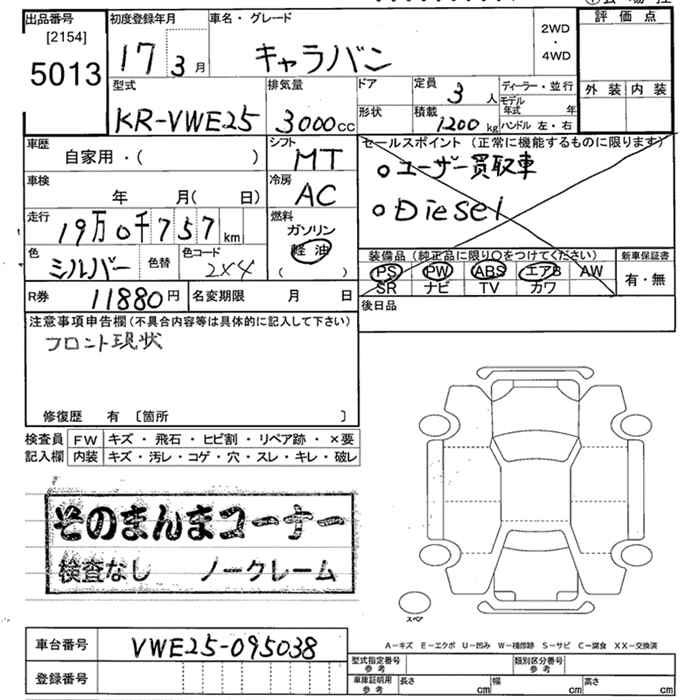 出品番号 [2154] 5013
初度登録年月 17 3月
車名・グレード キャラバン
2WD ・ 4WD
評価点
外装 内装
型式 KR-VWE25
排気量 3000cc
ドア
形状
定員 3 人
積載 1200 kg
ディーラー・並行
モデル年式 年
ハンドル 左・右
車歴 自家用・( )
シフト MT
セールスポイント (正常に機能するものに限ります)
ユーザー買取車
Diesel
車検 年 月( 日)
冷房 AC
走行 19万0千757km
燃料 ガソリン 軽油 ( )
色 シルバー 色替 色コード 2X4
装備品 (純正品に限り○をつけてください)
PS PW ABS エアB AW
SR ナビ TV カワ
新車保証書 有・無
R券 11880円 名変期限 月 日
後日品
注意事項申告欄 (不具合内容等は具体的に記入して下さい)
フロント現状
修復歴 有 〔箇所 〕
検査員記入欄
FW キズ・飛石・ヒビ割・リペア跡・×要
内装 キズ・汚レ・コゲ・穴・スレ・キレ・破レ
そのまんまコーナー
検査なし ノークレーム
スペア
車台番号 VWE25-095038
登録番号
A−キズ E−エクボ U−凹み W−補修跡 S−サビ C−腐食 XX−交換済
型式指定番号 参考
類別区分番号 参考
車庫証明用 参考 長さ cm 幅 cm 高さ cm